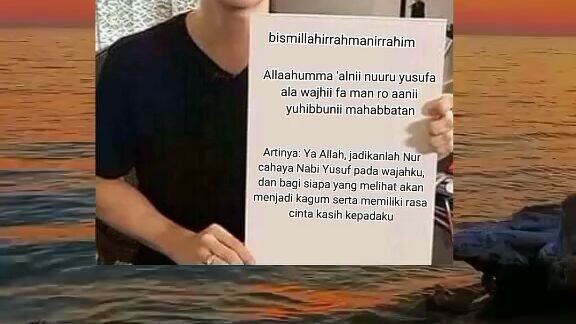 bismillahirrahmanirrahim
Allaahumma 'alnii nuuru yusufa
ala wajhii fa man ro aanii
yuhibbunii mahabbatan
Artinya: Ya Allah, jadikanlah Nur
cahaya Nabi Yusuf pada wajahku,
dan bagi siapa yang melihat akan
menjadi kagum serta memiliki rasa
cinta kasih kepadaku